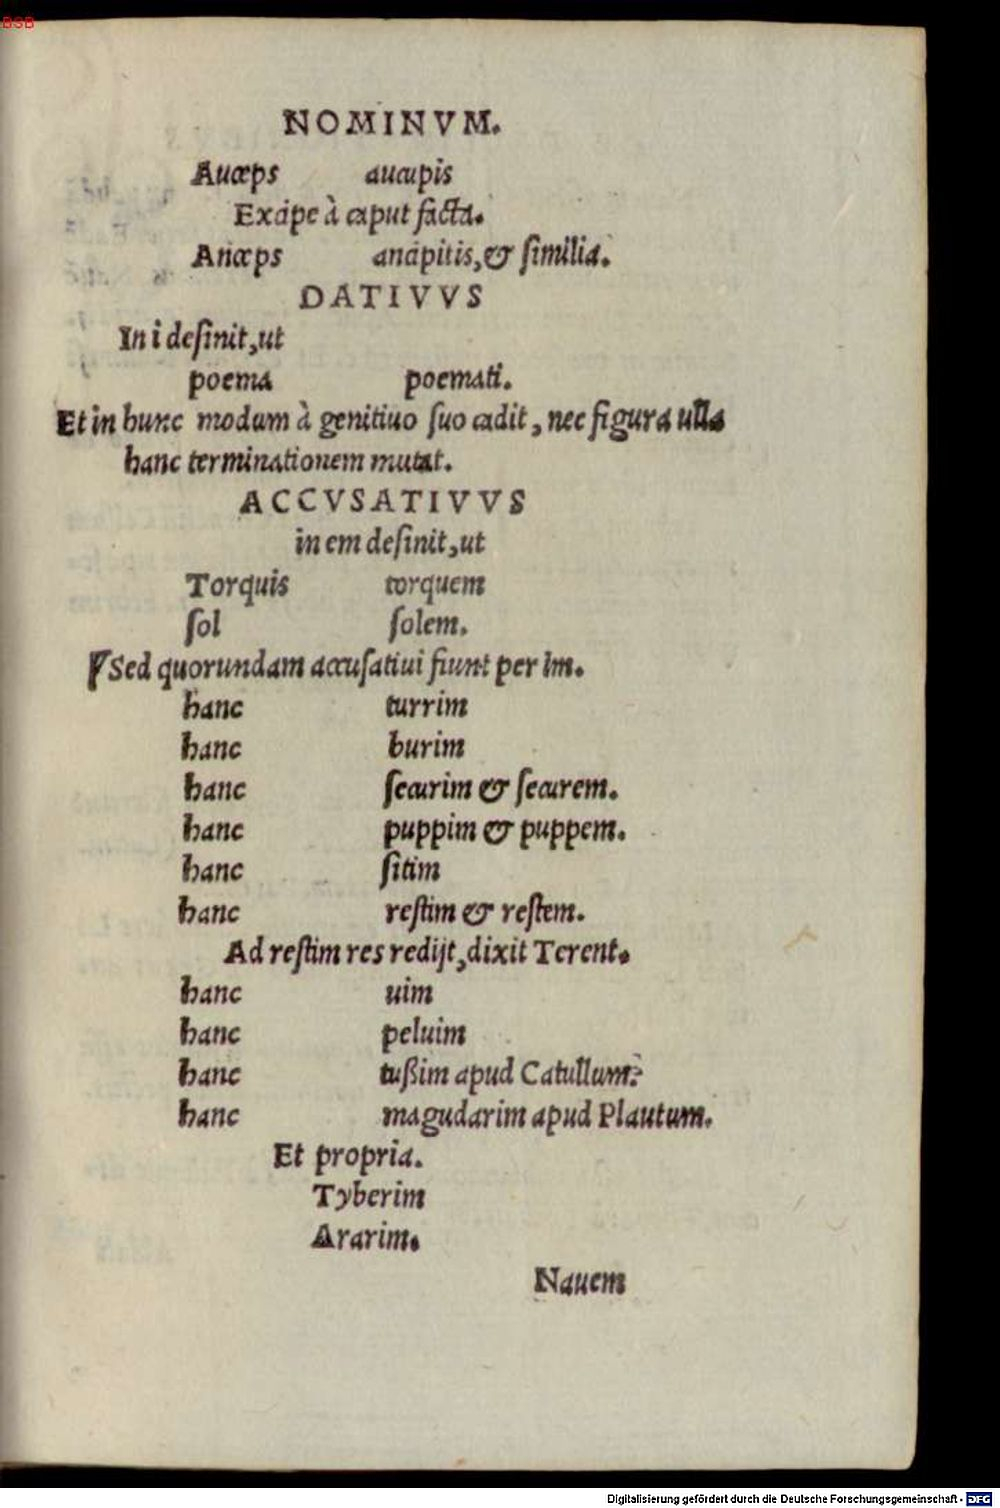 BSB
NOMINVM.
Auceps aucupis
Excipe à caput facta.
Anceps ancipitis, & ſimilia.
DATIVVS
In i deſinit, ut
poema poemati.
Et in hunc modum à genitiuo ſuo cadit, nec figura ulla
hanc terminationem mutat.
ACCVSATIVVS
in em deſinit, ut
Torquis torquem
ſol ſolem.
Sed quorundam accuſatiui fiunt per im.
hanc turrim
hanc burim
hanc ſecurim & ſecurem.
hanc puppim & puppem.
hanc ſitim
hanc reſtim & reſtem.
Ad reſtim res redijt, dixit Terent.
hanc uim
hanc peluim
hanc tußim apud Catullum:
hanc magudarim apud Plautum.
Et propria.
Tyberim
Ararim.
Nauem
Digitalisierung gefördert durch die Deutsche Forschungsgemeinschaft - DFG